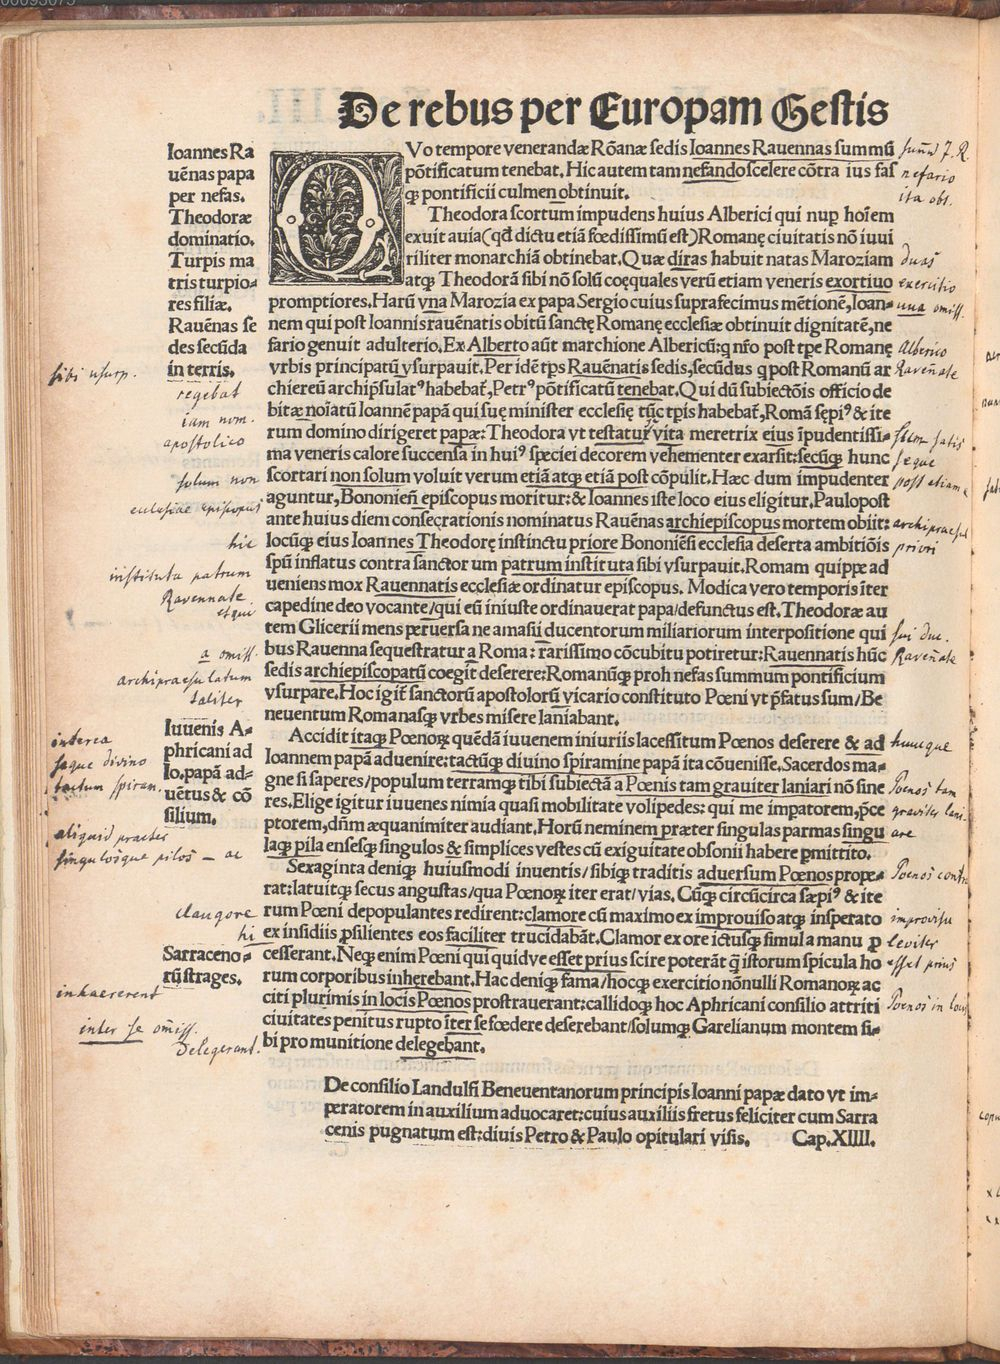 De rebus per Europam Gestis
Ioannes Ra
uēnas papa
per nefas.
Theodoræ
dominatio.
Turpis ma
tris turpio-
res filiæ.
Rauēnas se
des secūda
in terris.
QVo tempore venerandæ Rōanæ sedis Ioannes Rauennas summū
pōtificatum tenebat. Hic autem tam nefando scelere cōtra ius fas
q; pontificii culmen obtinuit.
Theodora scortum impudens huius Alberici qui nup hoīem
exuit auia (qd dictu etiā fœdissimū est) Romanę ciuitatis nō iuui
riliter monarchiā obtinebat. Quæ diras habuit natas Maroziam
atq; Theodorā sibi nō solū coęquales verū etiam veneris exortiuo
promptiores. Harū vna Marozia ex papa Sergio cuius supra fecimus mētionē, Ioan-
nem qui post Ioannis rauēnatis obitū sanctę Romanę ecclesiæ obtinuit dignitatē, ne
fario genuit adulterio. Ex Alberto aūt marchione Albericū: q nr̄o post tpe Romanę
vrbis principatū vsurpauit. Per idē tp̄s Rauēnatis sedis, secūdus q post Romanū ar
chiereū archip̄sulat⁹ habebat̄, Petr⁹ pōtificatū tenebat. Qui dū subiectōis officio de
bitæ noīatū Ioannē papā qui suę minister ecclesię tūc tp̄is habebat̄, Romā sępi⁹ & ite
rum domino dirigeret papæ: Theodora vt testatur vita meretrix eius īpudentissi-
ma veneris calore succensa in hui⁹ speciei decorem vehementer exarsit: secūq; hunc
scortari non solum voluit verum etiā atq; etiā post cōpulit. Hæc dum impudenter
aguntur, Bononieñ episcopus moritur: & Ioannes iste loco eius eligitur. Paulopost
ante huius diem consecrationis nominatus Rauēnas archiepiscopus mortem obiit:
locūq; eius Ioannes Theodorę instinctu priore Bononiēsi ecclesia deserta ambitiōis
spū inflatus contra sanctorum patrum instituta sibi vsurpauit. Romam quippe ad
ueniens mox Rauennatis ecclesiæ ordinatur episcopus. Modica vero temporis īter
capedine deo vocante/qui eū iniuste ordinauerat papa/defunctus est. Theodoræ au
tem Glicerii mens peruersa ne amasii ducentorum miliariorum interpositione qui
bus Rauenna sequestratur a Roma: rarissimo cōcubitu potiretur: Rauennatis hūc
sedis archiepiscopatū coegit deserere: Romanūq; proh nefas summum pontificium
vsurpare. Hoc igit̄ sanctorū apostolorū vicario constituto Pœni vt p̄fatus sum/Be
neuentum Romanasq; vrbes misere laniabant.
Iuuenis A-
phricani ad
Io. papā ad-
uētus & cō
silium.
Accidit itaq; Pœnoꝝ quēdā iuuenem iniuriis lacessitum Pœnos deserere & ad
Ioannem papā aduenire: tactūq; diuino spiramine papā ita cōuenisse. Sacerdos ma-
gne si saperes/populum terramq; tibi subiectā a Pœnis tam grauiter laniari nō sine
res. Elige igitur iuuenes nimia quasi mobilitate volipedes: qui me imp̄atorem, p̄ce
ptorem, dn̄m æquanimiter audiant. Horū neminem præter singulas parmas singu
laq; pila ensesq; singulos & simplices vestes cū exiguitate obsonii habere pmittito.
Sexaginta deniq; huiusmodi inuentis/sibiq; traditis aduersum Pœnos prope-
rat: latuitq; secus angustas/qua Pœnoꝝ iter erat/vias. Cūq; circūcirca sæpi⁹ & ite
rum Pœni depopulantes redirent: clamore cū maximo ex improuiso atq; insperato
ex insidiis prosilientes eos faciliter trucidabāt. Clamor ex ore ictusq; simul a manu p
Sarraceno-
rū strages.
cesserant. Neq; enim Pœni qui quidve esset prius scire poterāt q̄ istorum spicula ho
rum corporibus inherebant. Hac deniq; fama/hocq; exercitio nōnulli Romanoꝝ ac
citi plurimis in locis Pœnos prostrauerant: callidoq; hoc Aphricani consilio attriti
ciuitates penitus rupto īter se fœdere deserebant/solumq; Garelianum montem si-
bi pro munitione delegebant.
De consilio Landulfi Beneuentanorum principis Ioanni papæ dato vt im-
peratorem in auxilium aduocaret: cuius auxiliis fretus feliciter cum Sarra
cenis pugnatum est: diuis Petro & Paulo opitulari visis. Cap. XIIII.
sum̄ J. R.
nefario
ita obt.
duas
exercitio
una omiss.
Alberico
Raveñate
satis
seque
post etiam
archipraesul
priori
sui duc.
Raveñate
huncque
Poenos tam
graviter lani-
are
Poenos contra
improvisu
leviter
esset prius
Poenos in locis
sibi usurp.
regebat
iam nom.
apostolico
solum non
ecclesiae episcopus
hic
instituta patrum
Ravennate
et qui
a omiss.
archipraesulatum
taliter
interea
seque divino
tactum spiram.
aliquid praeter
singulosque pilos – ac
clangore
hi
inhaererent
inter se omiss.
Delegerant.